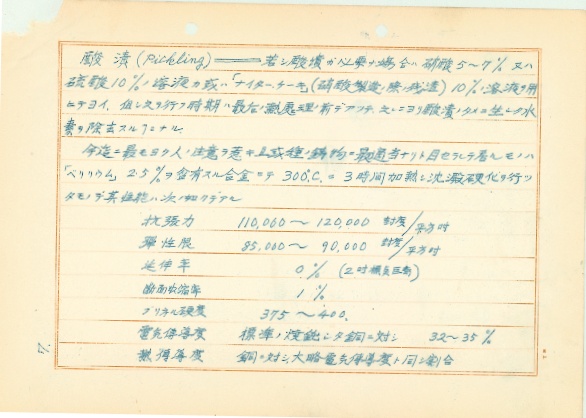 酸漬 (Pickling) ─── 若シ酸漬ガ必要ナ場合ハ硝酸5〜7% 又ハ
硫酸10%ノ溶液カ或ハ「ナイターケーキ(硝酸製造ノ際ノ残渣) 10%ノ溶液ヲ用
ヒテヨイ、但シ之ヲ行フ時期ハ最后ノ熱処理ノ前デアツテ、之ニヨリ酸漬ノタメニ生シタ水
素ヲ除去スル
今迄ニ最モヨク人ノ注意ヲ惹キ且或種ノ鋳物ニ最適当ナリト目セラレテ居ルモノハ
「ベリリウム」2.5%ヲ含有スル合金ニテ 300℃. ニ 3時間加熱シ沈澱硬化ヲ行ツ
タモノデ其性能ハ次ノ如クデアル
抗張力 110,000〜120,000 封度/平方吋
弾性限 85,000〜90,000 封度/平方吋
延伸率 0% (2吋標点距離)
断面収縮率 1%
ブリネル硬度 375〜400.
電気伝導度 標準ノ焼鈍シタ銅ニ対シ 32〜35%
熱伝導度 銅ニ対シ大略電気伝導度ト同ジ割合